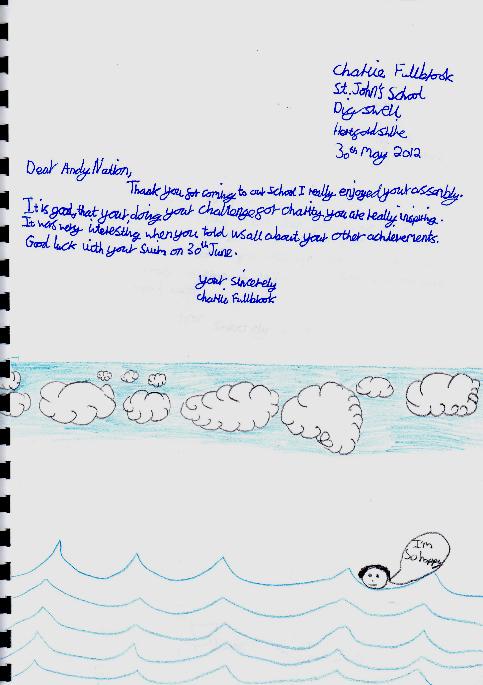 Charlie Fullbrook
St. John's School
Digswell
Hertfordshire
30th May 2012
Dear Andy Nation,
Thank you for coming to our school I really enjoyed your assembly.
It is good, that your doing your challenge for charity you are really inspiring.
It was very interesting when you told us all about your other achievements.
Good luck with your swim on 30th June.
your sincerely
Charlie Fullbrook
I'm
So happy